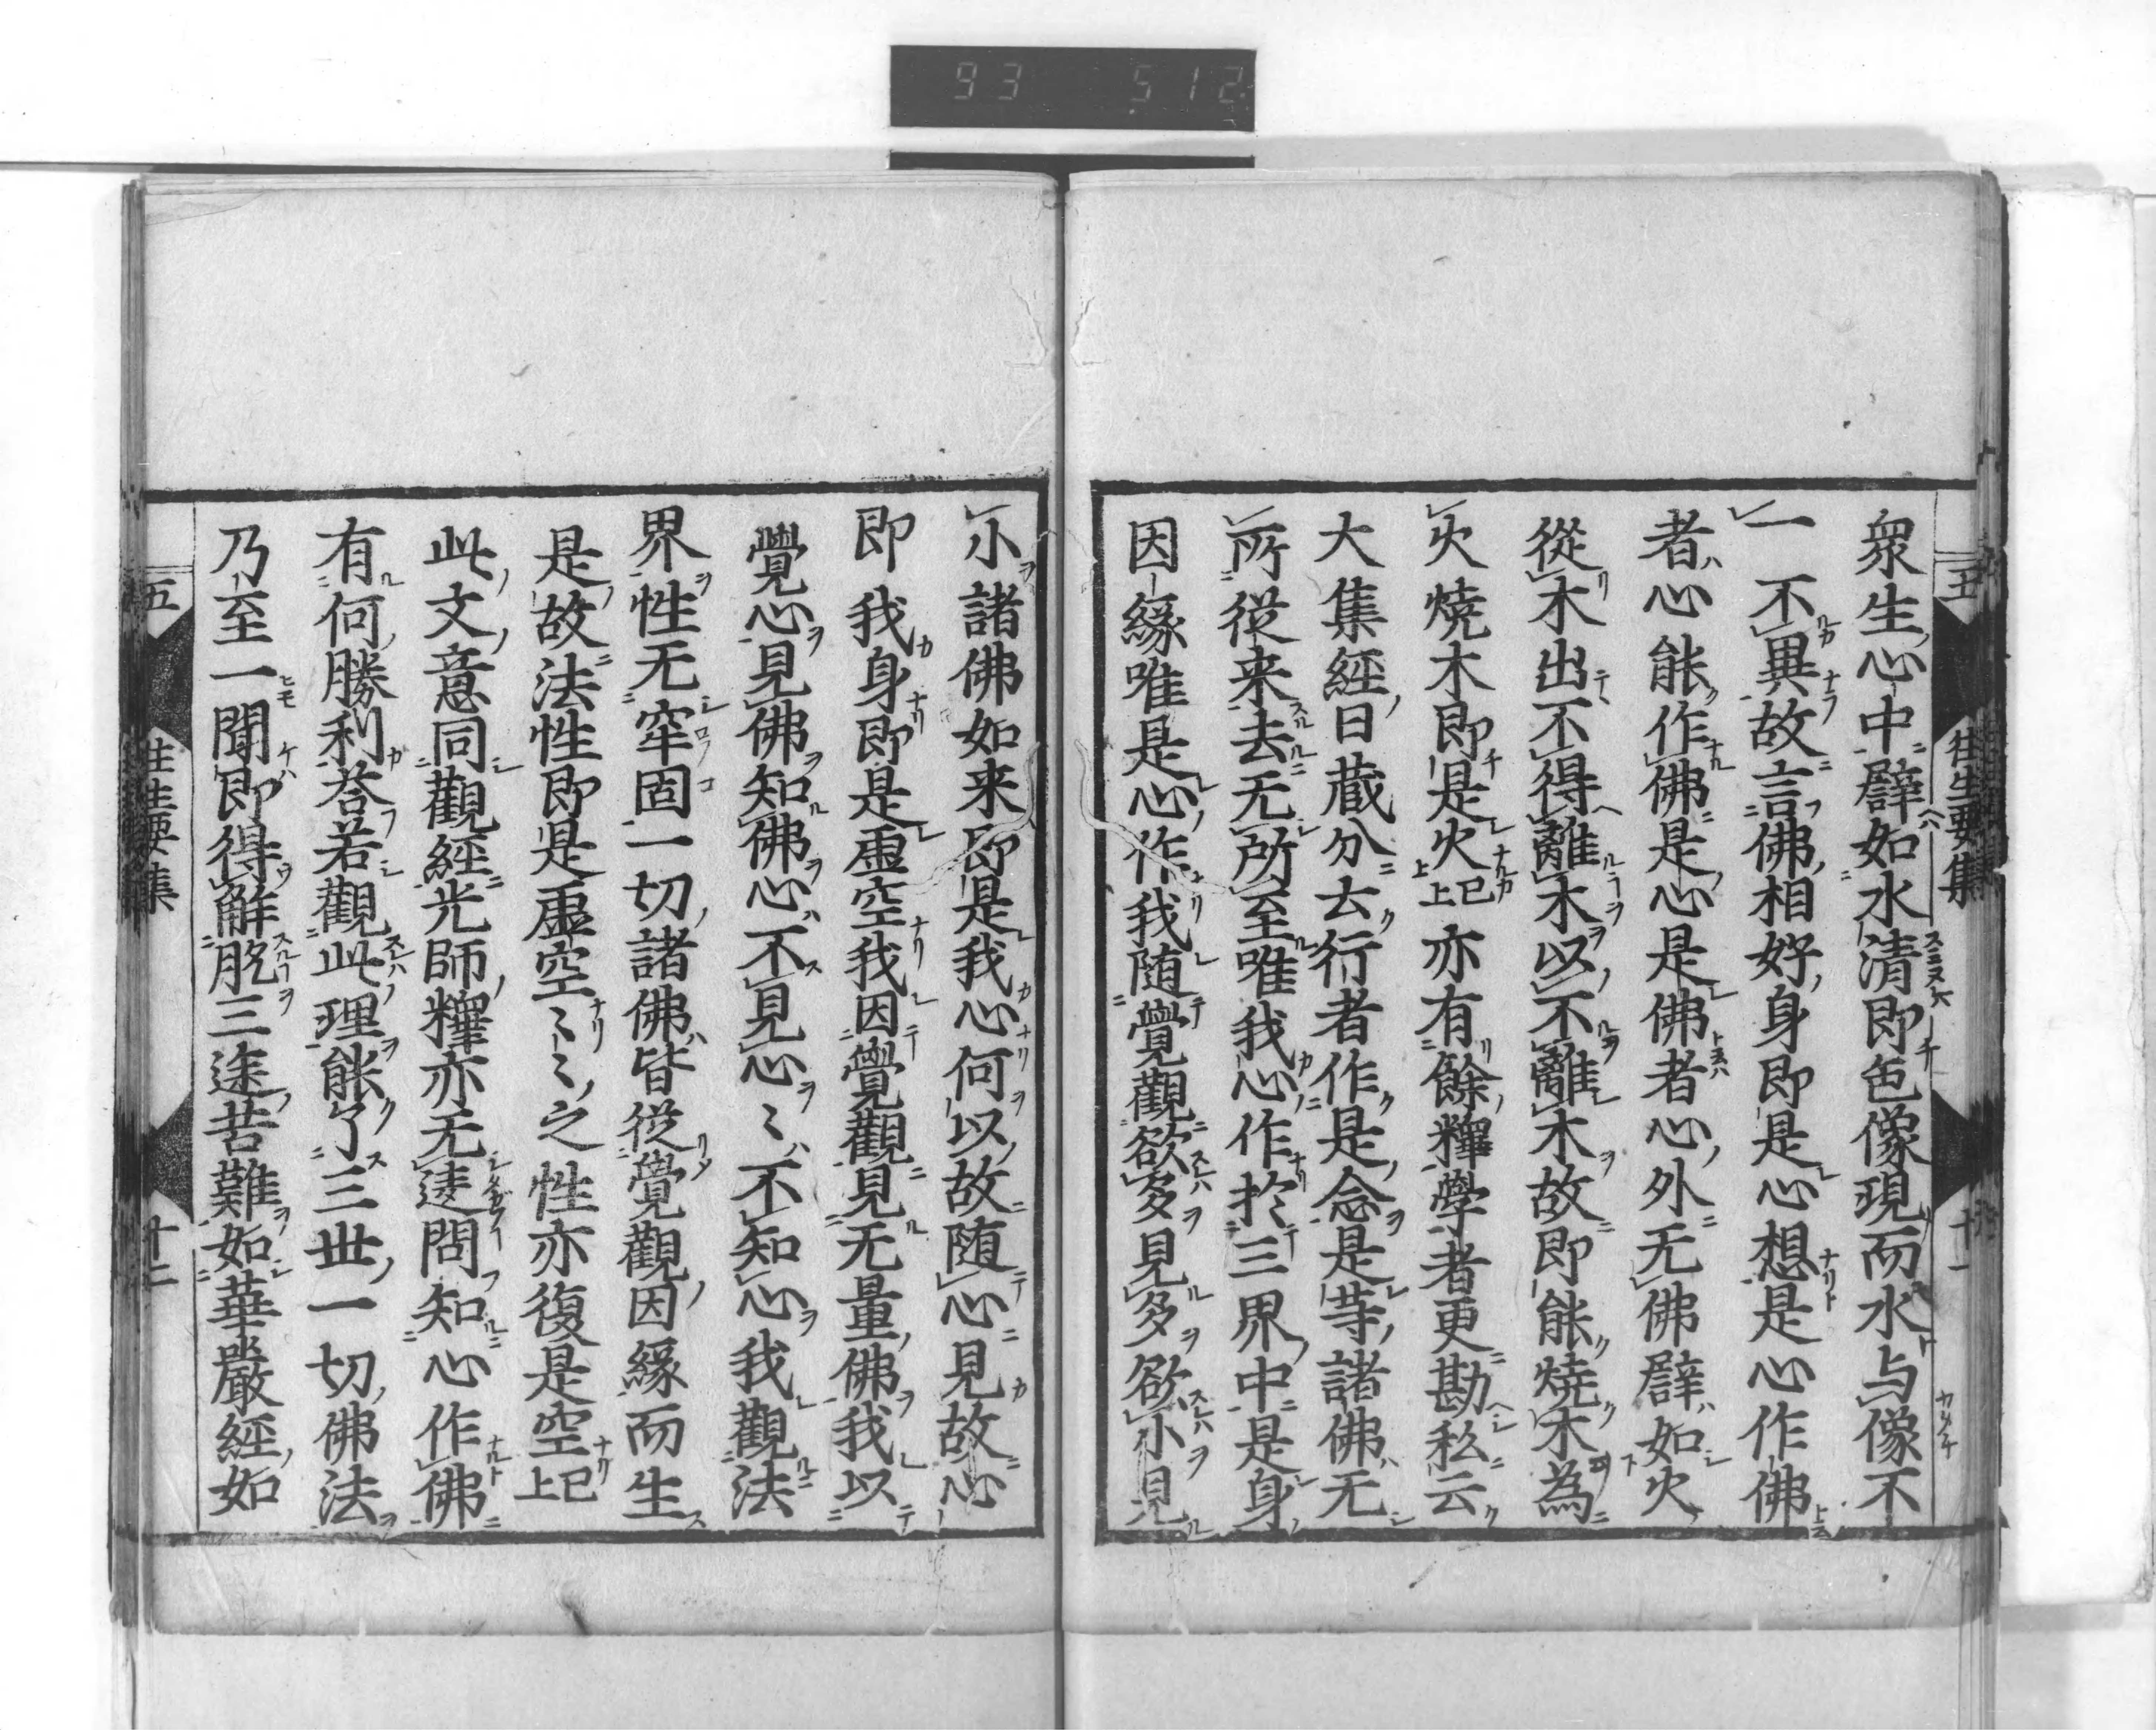 93 512
衆生心中譬如水清即色像現而水与像不
一不異故言佛相好身即是心想是心作佛
者心能作佛是心是佛者心外无佛譬如火
從木出不得離木以不離木故即能燒木為
火燒木即是火已上亦有餘釋學者更勘私云
大集經日蔵分云行者作是念是等諸佛无
所從来去无所至唯我心作於三界中是身
因緣唯是心作我随覺觀欲多見多欲小見
小諸佛如来即是我心何以故随心見故心
即我身即是虚空我因覺觀見无量佛我以
覺心見佛知佛心不見心心〻不知心我觀法
界性无牢固一切諸佛皆從覺觀因緣而生
是故法性即是虚空〻〻之性亦復是空已上
此文意同觀經光師釋亦无違問知心作佛
有何勝利答若觀此理能了三世一切佛法
乃至一聞即得解脱三途苦難如華嚴經如
五 往生要集 十一
五 往生要集 十二